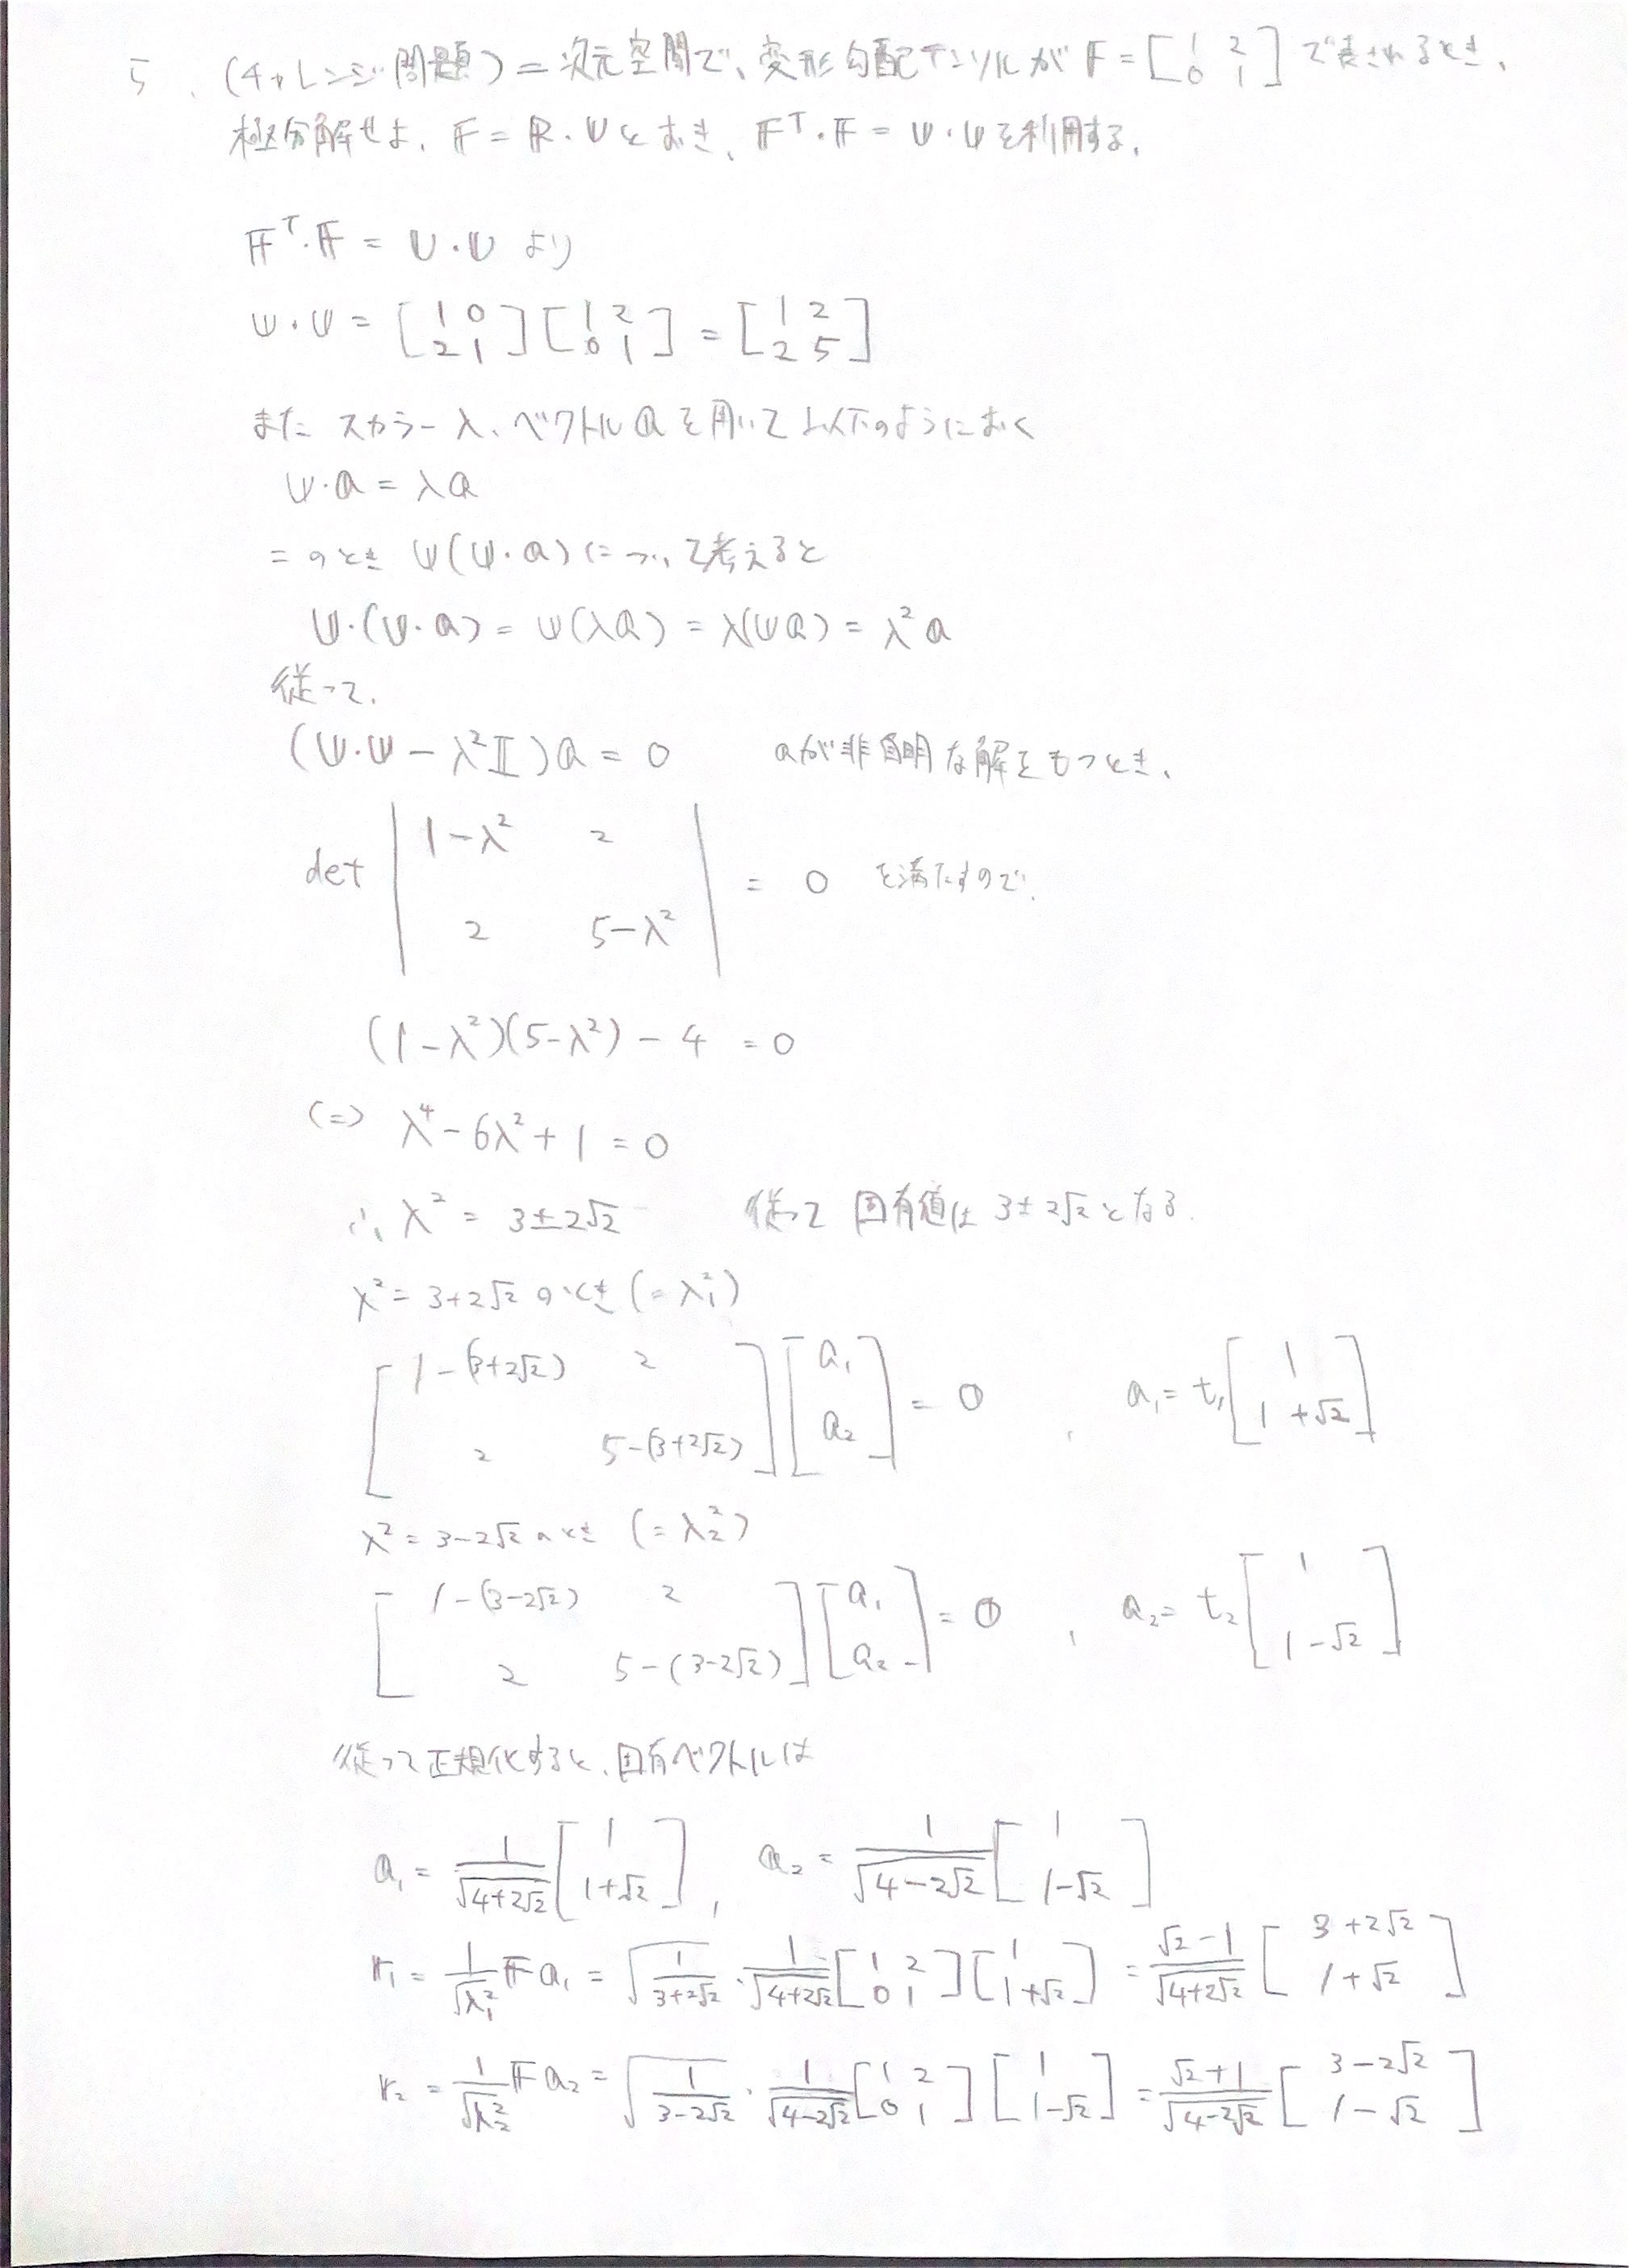 5. (チャレンジ問題) 二次元空間で、変形勾配テンソルが F = [1 2; 0 1] で表されるとき、
極分解せよ. F = R・U とおき、F^T・F = U・U を利用する.
F^T・F = U・U より
U・U = [1 0; 2 1][1 2; 0 1] = [1 2; 2 5]
また スカラー λ、ベクトル a を用いて以下のようにおく
U・a = λa
このとき U(U・a) について考えると
U・(U・a) = U(λa) = λ(Ua) = λ²a
従って、
(U・U − λ²I)a = 0 aが非自明な解をもつとき、
det |1−λ² 2; 2 5−λ²| = 0 を満たすので、
(1−λ²)(5−λ²) − 4 = 0
(=) λ⁴ − 6λ² + 1 = 0
∴ λ² = 3±2√2 従って 固有値は 3±2√2 となる.
λ² = 3+2√2 のとき (= λ₁²)
[1−(3+2√2) 2; 2 5−(3+2√2)][a₁; a₂] = 0 , a₁ = t₁[1; 1+√2]
λ² = 3−2√2 のとき (= λ₂²)
[1−(3−2√2) 2; 2 5−(3−2√2)][a₁; a₂] = 0 , a₂ = t₂[1; 1−√2]
従って正規化すると、固有ベクトルは
a₁ = 1/√(4+2√2) [1; 1+√2] , a₂ = 1/√(4−2√2) [1; 1−√2]
r₁ = 1/√(λ₁²) F a₁ = √(1/(3+2√2)) · 1/√(4+2√2) [1 2; 0 1][1; 1+√2] = (√2−1)/√(4+2√2) [3+2√2; 1+√2]
r₂ = 1/√(λ₂²) F a₂ = √(1/(3−2√2)) · 1/√(4−2√2) [1 2; 0 1][1; 1−√2] = (√2+1)/√(4−2√2) [3−2√2; 1−√2]